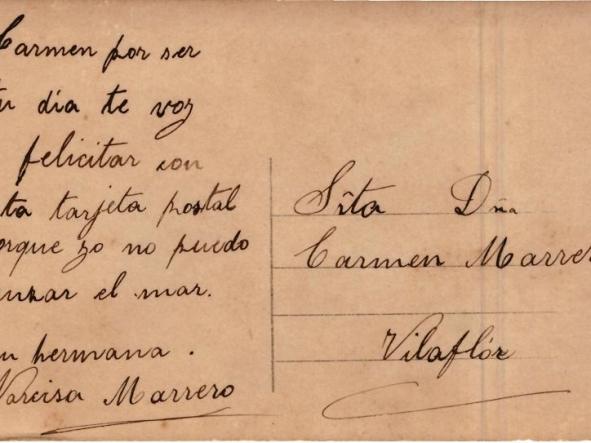 Carmen por ser
tu día te voy
felicitar con
ta tarjeta postal
orque yo no puedo
nzar el mar.
u hermana.
Narcisa Marrero
Srta Dña
Carmen Marrer
Vilaflór